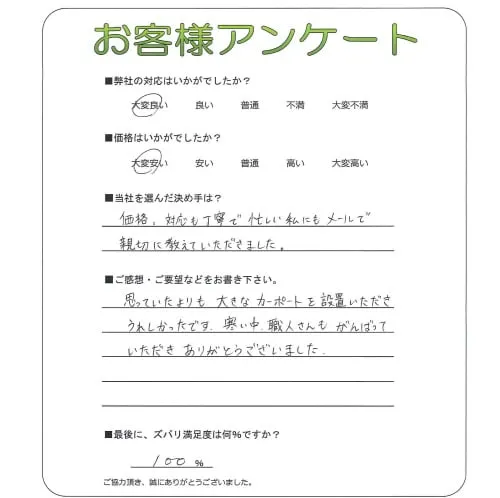 お客様アンケート
■弊社の対応はいかがでしたか？
大変良い 良い 普通 不満 大変不満
■価格はいかがでしたか？
大変安い 安い 普通 高い 大変高い
■当社を選んだ決め手は？
価格、対応も丁寧で 忙しい私にも メールで
親切に教えていただきました。
■ご感想・ご要望などをお書き下さい。
思っていたよりも 大きな カーポートを 設置いただき
うれしかったです. 寒い中. 職人さんも がんばって
いただき ありがとうございました.
■最後に、ズバリ満足度は何%ですか？
100 %
ご協力頂き、誠にありがとうございました。